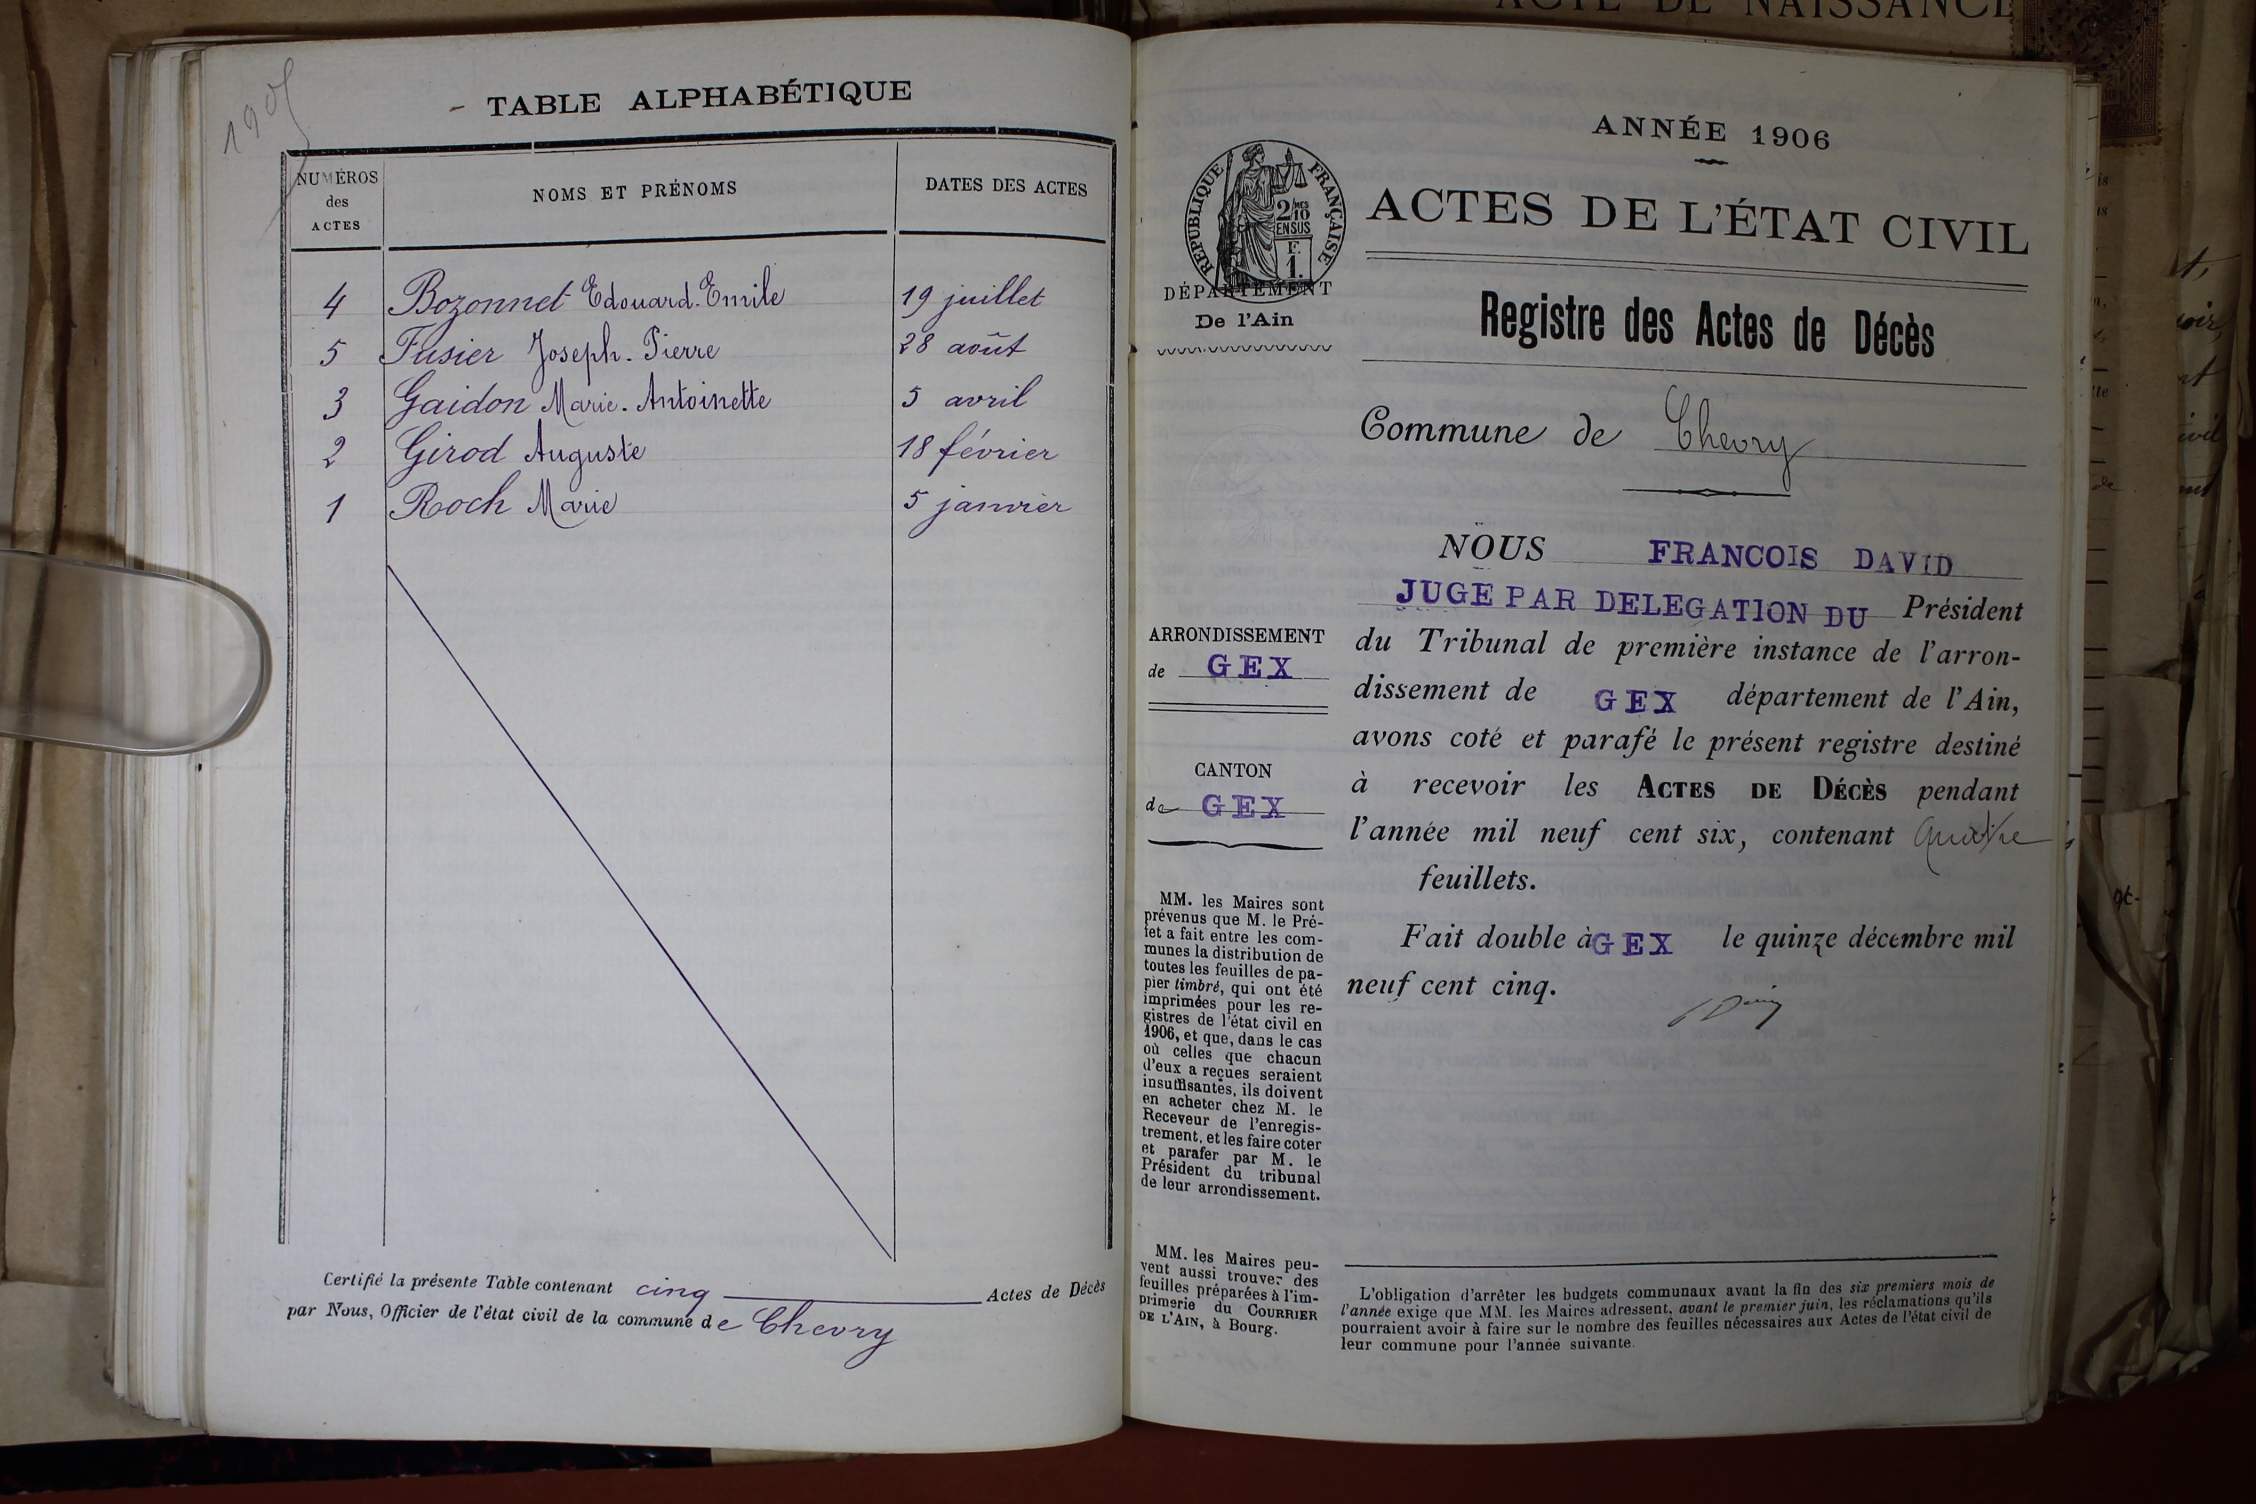 1905
TABLE ALPHABÉTIQUE
NUMÉROS
des
ACTES
NOMS ET PRÉNOMS
DATES DES ACTES
4 Bozonnet Edouard-Emile 19 juillet
5 Fusier Joseph-Pierre 28 août
3 Gaidon Marie-Antoinette 5 avril
2 Girod Auguste 18 février
1 Roch Marie 5 janvier
Certifié la présente Table contenant cinq Actes de Décès
par Nous, Officier de l'état civil de la commune de Chevry
ACTE DE NAISSANCE
ANNÉE 1906
RÉPUBLIQUE FRANÇAISE
2/10 MES
EN SUS
F.
1.
DÉPARTEMENT
De l'Ain
ACTES DE L'ÉTAT CIVIL
Registre des Actes de Décès
Commune de Chevry
NOUS FRANCOIS DAVID
JUGE PAR DELEGATION DU Président
du Tribunal de première instance de l'arron-
dissement de GEX département de l'Ain,
avons coté et parafé le présent registre destiné
à recevoir les ACTES DE DÉCÈS pendant
l'année mil neuf cent six, contenant quatre
feuillets.
Fait double à GEX le quinze décembre mil
neuf cent cinq.
ARRONDISSEMENT
de GEX
CANTON
de GEX
MM. les Maires sont
prévenus que M. le Pré-
fet a fait entre les com-
munes la distribution de
toutes les feuilles de pa-
pier timbré, qui ont été
imprimées pour les re-
gistres de l'état civil en
1906, et que, dans le cas
où celles que chacun
d'eux a reçues seraient
insuffisantes, ils doivent
en acheter chez M. le
Receveur de l'enregis-
trement, et les faire coter
et parafer par M. le
Président du tribunal
de leur arrondissement.
MM. les Maires peu-
vent aussi trouver des
feuilles préparées à l'im-
primerie du COURRIER
DE L'AIN, à Bourg.
L'obligation d'arrêter les budgets communaux avant la fin des six premiers mois de
l'année exige que MM. les Maires adressent, avant le premier juin, les réclamations qu'ils
pourraient avoir à faire sur le nombre des feuilles nécessaires aux Actes de l'état civil de
leur commune pour l'année suivante.